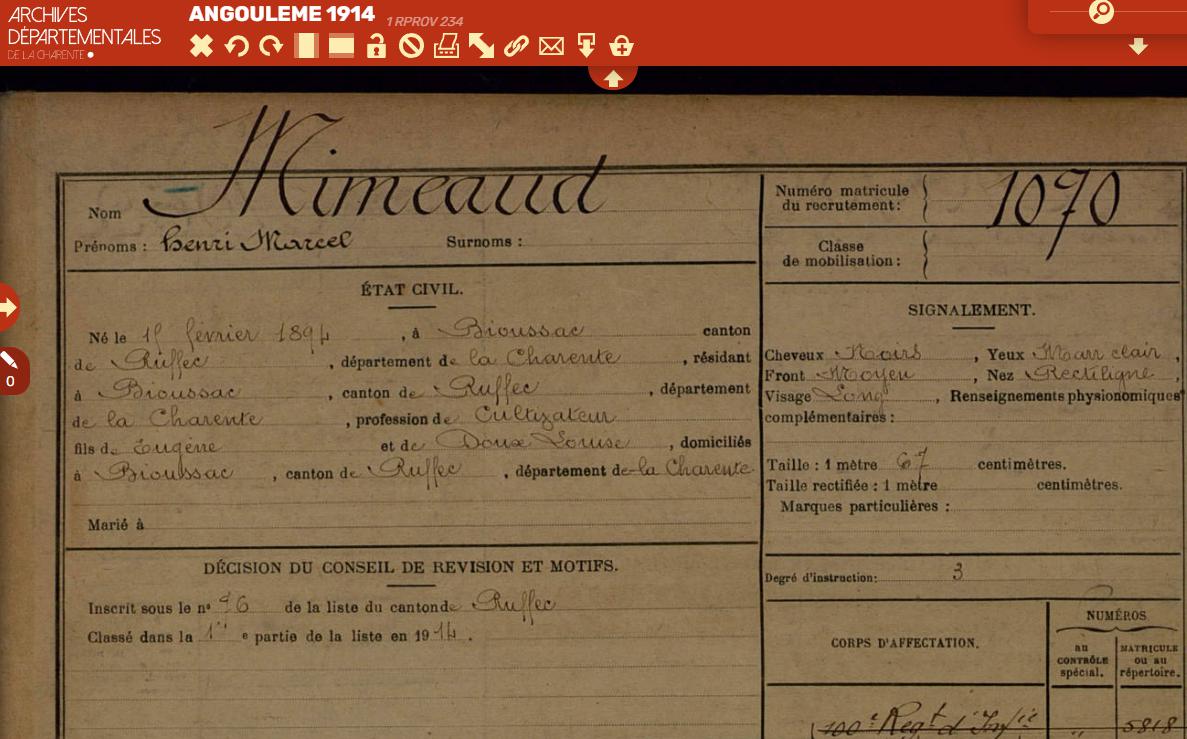 ARCHIVES
DÉPARTEMENTALES
DE LA CHARENTE
ANGOULEME 1914 1 RPROV 234
0
Nom Mimeaud
Prénoms : Henri Marcel Surnoms :
ÉTAT CIVIL.
Né le 15 février 1894, à Bioussac canton
de Ruffec, département de la Charente, résidant
à Bioussac, canton de Ruffec, département
de la Charente, profession de Cultivateur
fils de Eugène et de Doux Louise, domiciliés
à Bioussac, canton de Ruffec, département de la Charente.
Marié à
DÉCISION DU CONSEIL DE REVISION ET MOTIFS.
Inscrit sous le nº 96 de la liste du canton de Ruffec
Classé dans la 1re e partie de la liste en 1914.
Numéro matricule
du recrutement : 1070
Classe
de mobilisation :
SIGNALEMENT.
Cheveux Noirs, Yeux Marr clair,
Front Moyen, Nez Rectiligne,
Visage Long, Renseignements physionomiques
complémentaires :
Taille : 1 mètre 67 centimètres.
Taille rectifiée : 1 mètre centimètres.
Marques particulières :
Degré d'instruction : 3
CORPS D'AFFECTATION.
NUMÉROS
au
CONTRÔLE
spécial.
MATRICULE
ou au
répertoire.
100e Regt d'Infie " 5818